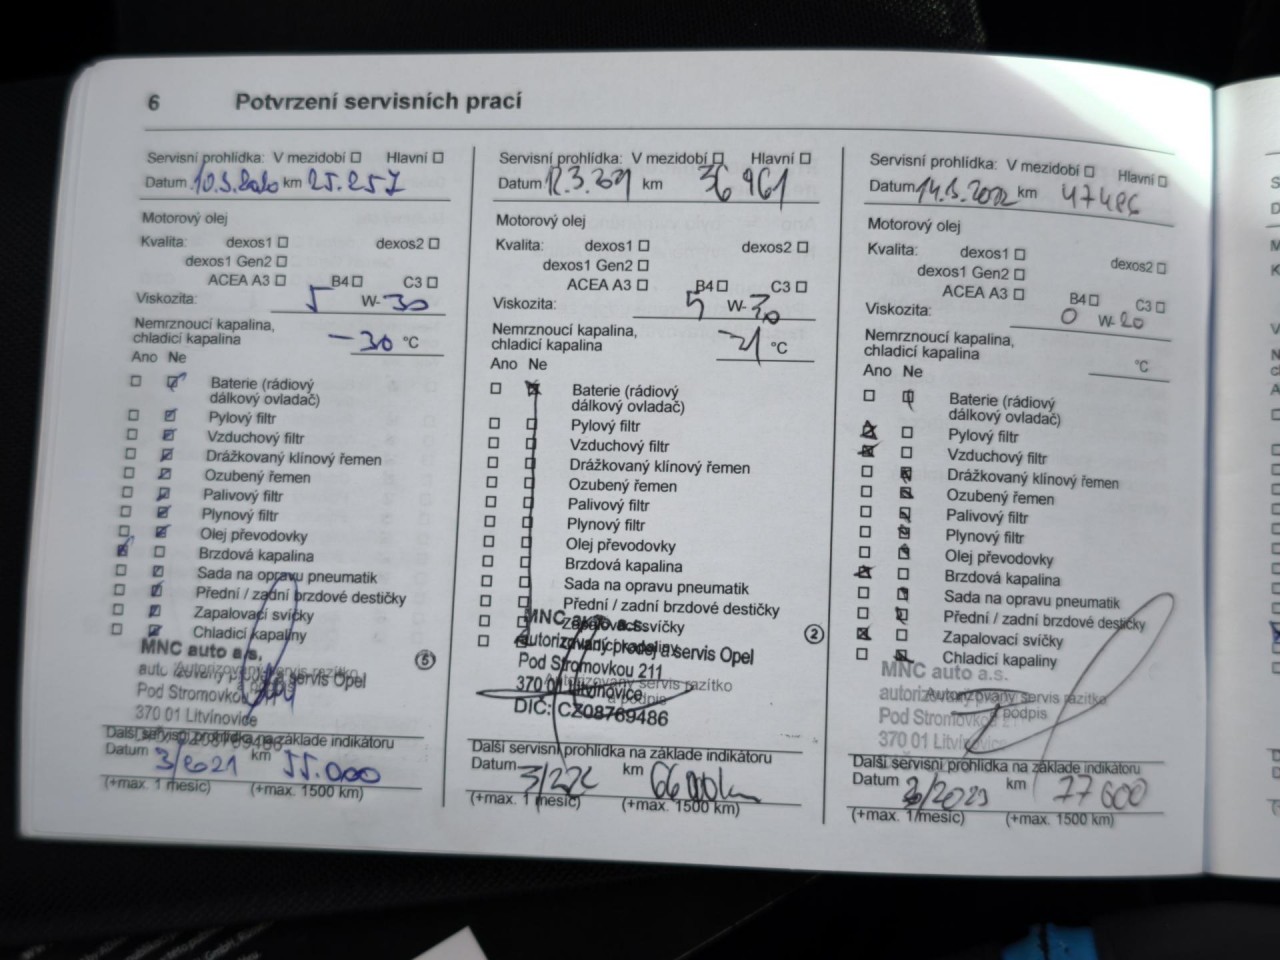 6 Potvrzení servisních prací
Servisní prohlídka: V mezidobí ☐ Hlavní ☐
Datum 10.3.2020 km 25.257
Motorový olej
Kvalita: dexos1 ☐ dexos2 ☐
dexos1 Gen2 ☐
ACEA A3 ☐ B4 ☐ C3 ☐
Viskozita: 5 W-30
Nemrznoucí kapalina,
chladicí kapalina -30 °C
Ano Ne
Baterie (rádiový
dálkový ovladač)
Pylový filtr
Vzduchový filtr
Drážkovaný klínový řemen
Ozubený řemen
Palivový filtr
Plynový filtr
Olej převodovky
Brzdová kapalina
Sada na opravu pneumatik
Přední / zadní brzdové destičky
Zapalovací svíčky
Chladicí kapaliny
MNC auto a.s,
Autorizovaný servis razítko
servis Opel
Pod Stromovkou
370 01 Litvínovice
5
Další servisní prohlídka na základe indikátoru
Datum 3/2021 km 55.000
(+max. 1 měsíc) (+max. 1500 km)
Servisní prohlídka: V mezidobí ☐ Hlavní ☐
Datum 12.3.2021 km 36 961
Motorový olej
Kvalita: dexos1 ☐ dexos2 ☐
dexos1 Gen2 ☐
ACEA A3 ☐ B4 ☐ C3 ☐
Viskozita: 5 W-30
Nemrznoucí kapalina,
chladicí kapalina °C
Ano Ne
Baterie (rádiový
dálkový ovladač)
Pylový filtr
Vzduchový filtr
Drážkovaný klínový řemen
Ozubený řemen
Palivový filtr
Plynový filtr
Olej převodovky
Brzdová kapalina
Sada na opravu pneumatik
Přední / zadní brzdové destičky
MNC auto a.s.
Zapalovací svíčky
autorizovaný prodej a servis Opel
Pod Stromovkou 211
Autorizovaný servis razítko
a podpis
370 01 Litvínovice
DIČ: CZ08769486
2
Další servisní prohlídka na základe indikátoru
Datum 3/22 km 66 000 km
(+max. 1 měsíc) (+max. 1500 km)
Servisní prohlídka: V mezidobí ☐ Hlavní ☐
Datum 14.3.2022 km 47486
Motorový olej
Kvalita: dexos1 ☐ dexos2 ☐
dexos1 Gen2 ☐
ACEA A3 ☐ B4 ☐ C3 ☐
Viskozita: 0 W-20
Nemrznoucí kapalina,
chladicí kapalina °C
Ano Ne
Baterie (rádiový
dálkový ovladač)
Pylový filtr
Vzduchový filtr
Drážkovaný klínový řemen
Ozubený řemen
Palivový filtr
Plynový filtr
Olej převodovky
Brzdová kapalina
Sada na opravu pneumatik
Přední / zadní brzdové destičky
Zapalovací svíčky
Chladicí kapaliny
MNC auto a.s.
Autorizovaný servis razítko
a podpis
Pod Stromovkou
370 01 Litvínovice
Další servisní prohlídka na základe indikátoru
Datum 3/2023 km 77 600
(+max. 1 měsíc) (+max. 1500 km)